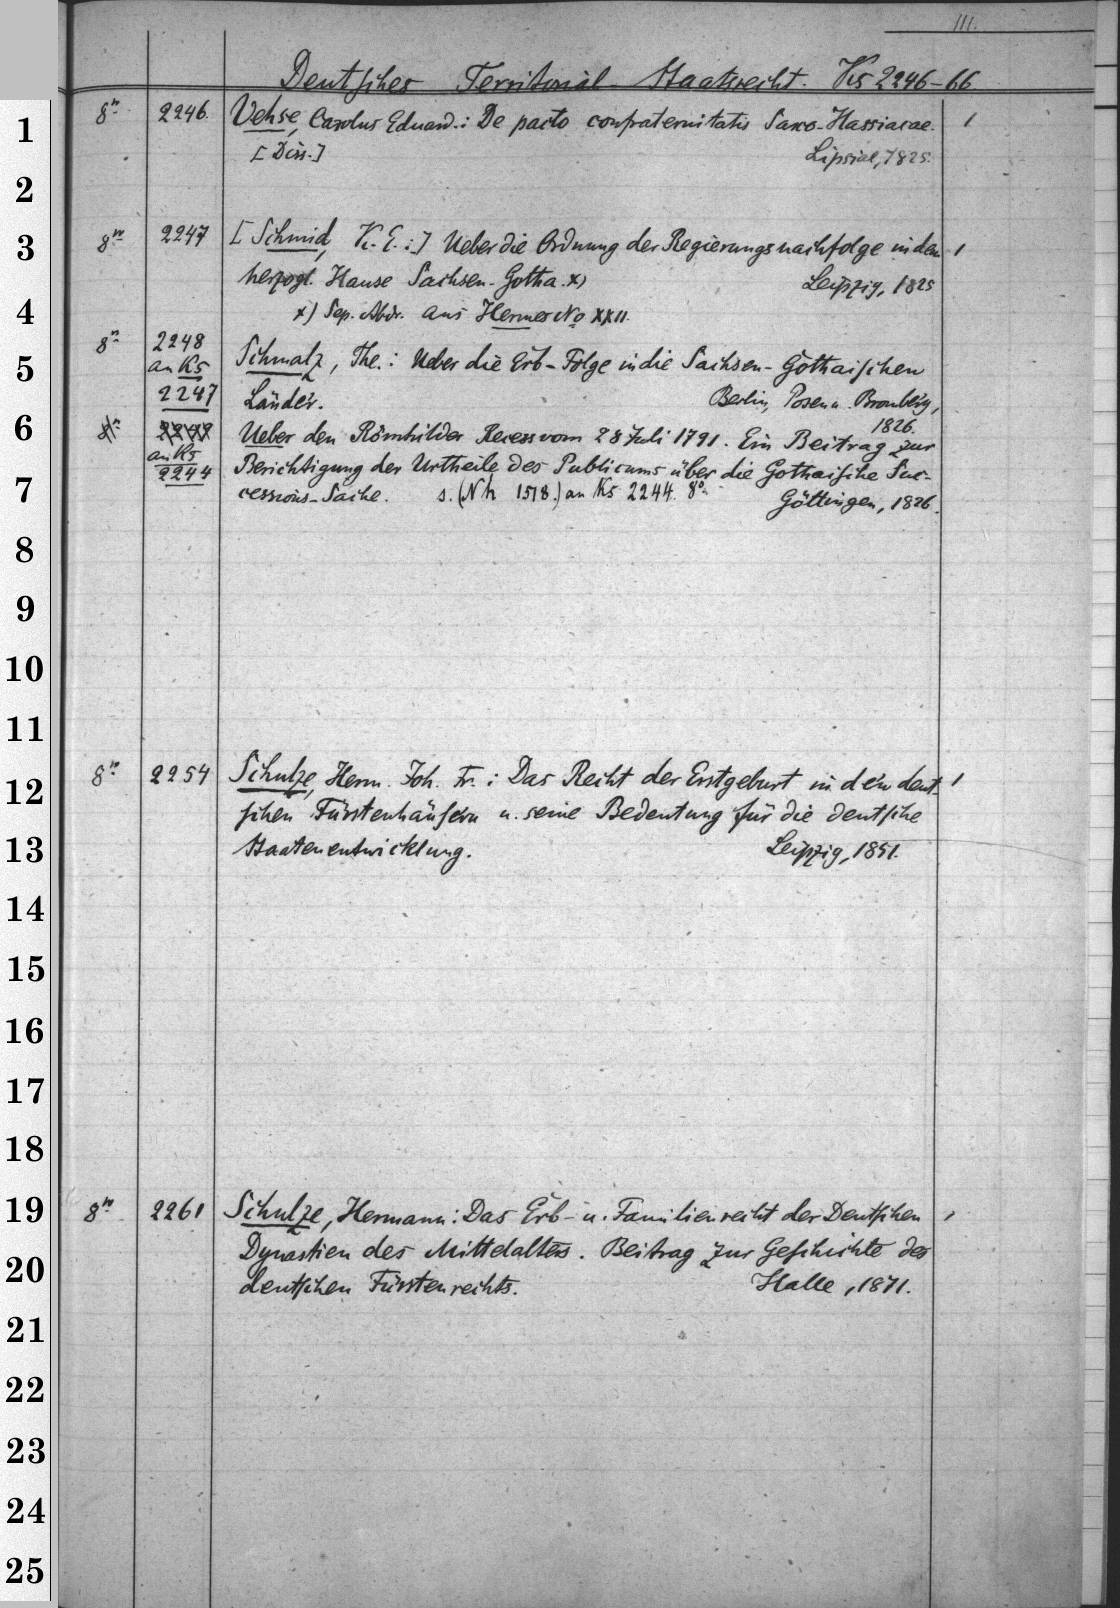 III.
Deutsches Territorial-Staatsrecht. Ks 2246-66
1
8º 2246. Vehse, Carolus Eduard.: De pacto confraternitatis Saxo-Hassiacae. 1
[Diss.] Lipsiae, 1825.
2
3
8º 2247 [Schmid, K. E.:] Ueber die Ordnung der Regierungsnachfolge in dem 1
herzogl. Hause Sachsen-Gotha. x) Leipzig, 1825
4
x) Sep. Abdr. aus Hermes No XXII.
8º 2248
5
an Ks Schmalz, Th.: Ueber die Erb-Folge in die Sachsen-Gothaischen
2247 Länder. Berlin, Posen u. Bromberg,
1826.
6
Ueber den Römhilder Recess vom 28 Juli 1791. Ein Beitrag zur
an Ks
2244 Berichtigung der Urtheile des Publicums über die Gothaische Suc-
7
cessions-Sache. s. (Nh 1518.) an Ks 2244. 8º Göttingen, 1826.
8
9
10
11
12
8º 2254 Schulze, Herm. Joh. Fr.: Das Recht der Erstgeburt in den deut- 1
schen Fürstenhäusern u. seine Bedeutung für die deutsche
13
Staatenentwicklung. Leipzig, 1851.
14
15
16
17
18
19
8º 2261 Schulze, Hermann: Das Erb- u. Familienrecht der Deutschen 1
Dynastien des Mittelalters. Beitrag zur Geschichte des
20
deutschen Fürstenrechts. Halle, 1871.
21
22
23
24
25